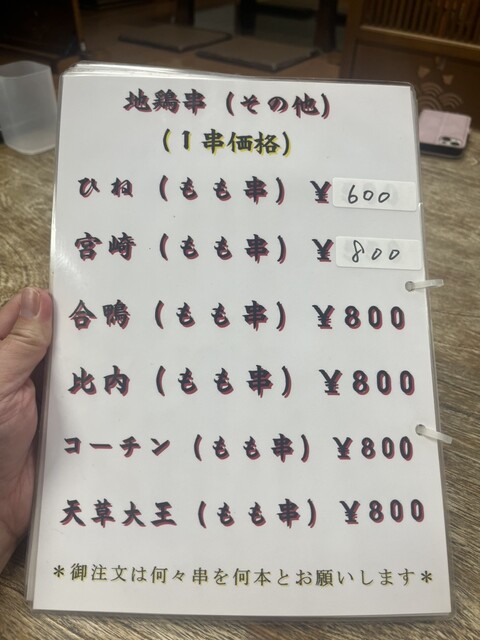 地鶏串（その他）
（１串価格）
ひね（もも串）¥600
宮崎（もも串）¥800
合鴨（もも串）¥800
比内（もも串）¥800
コーチン（もも串）¥800
天草大王（もも串）¥800
＊御注文は何々串を何本とお願いします＊